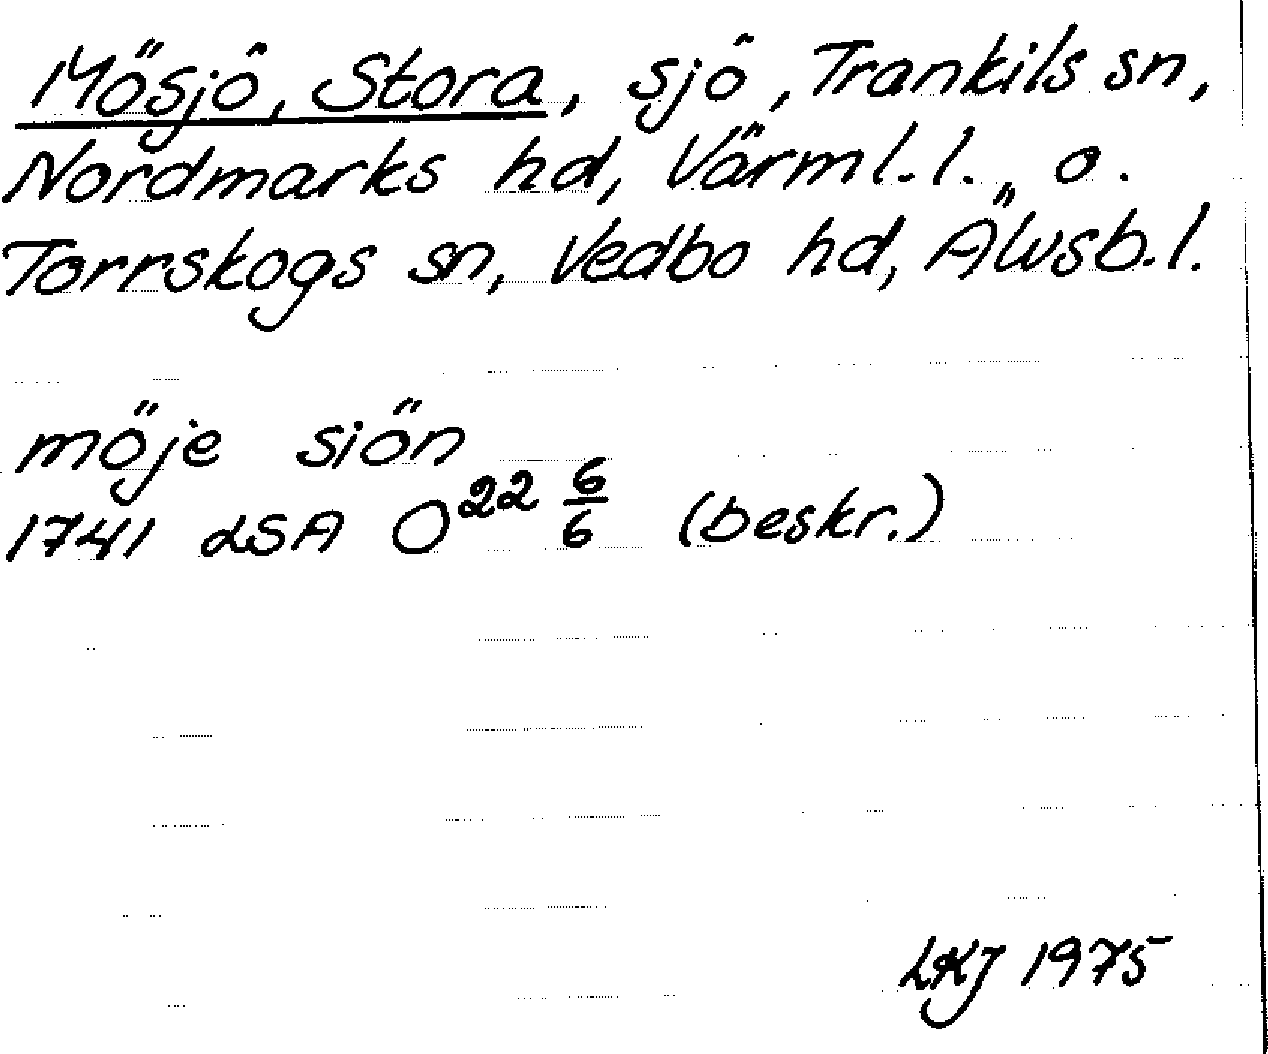 Mösjö, Stora, sjö, Trankils sn,
Nordmarks hd, Värml.l. o.
Torrskogs sn, Vedbo hd, Älvsb.l.
möje siön
1741 LSA O²² 6/6 (beskr.)
LKJ 1975